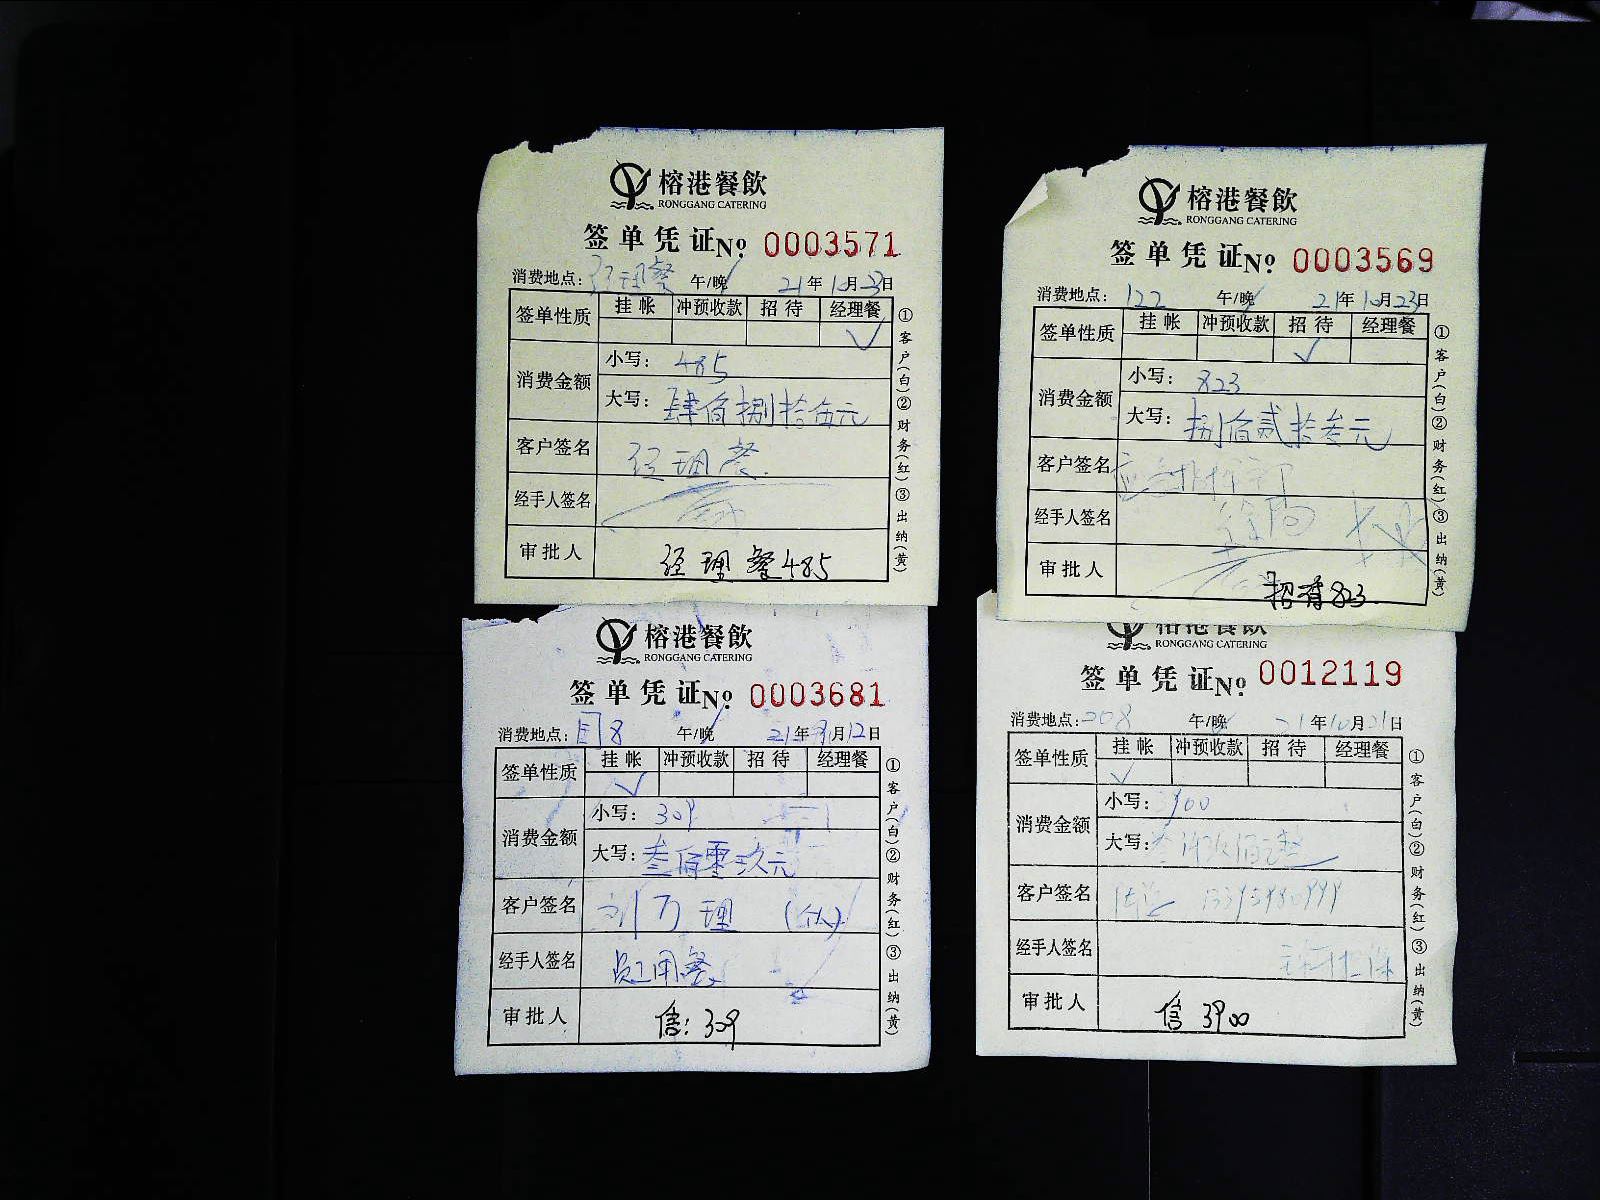 榕港餐飲
RONGGANG CATERING
签单凭证 № 0003571
消费地点：经理餐 午/晚 21年10月23日
签单性质 挂帐 冲预收款 招待 经理餐
✓
消费金额 小写：485
大写：肆佰捌拾伍元
客户签名 经理餐
经手人签名
审批人 经理餐485
①客户(白)②财务(红)③出纳(黄)
榕港餐飲
RONGGANG CATERING
签单凭证 № 0003569
消费地点：122 午/晚 21年10月23日
签单性质 挂帐 冲预收款 招待 经理餐
✓
消费金额 小写：823
大写：捌佰贰拾叁元
客户签名
经手人签名
审批人 招待823
①客户(白)②财务(红)③出纳(黄)
榕港餐飲
RONGGANG CATERING
签单凭证 № 0003681
消费地点： 8 午/晚 21年 月12日
签单性质 挂帐 冲预收款 招待 经理餐
✓
消费金额 小写：309
大写：叁佰零玖元
客户签名 刘 理
经手人签名 员工用餐
审批人 信：309
①客户(白)②财务(红)③出纳(黄)
榕港餐飲
RONGGANG CATERING
签单凭证 № 0012119
消费地点：208 午/晚 21年10月21日
签单性质 挂帐 冲预收款 招待 经理餐
✓
消费金额 小写：3900
大写：叁仟玖佰元整
客户签名
经手人签名
审批人 信 3900
①客户(白)②财务(红)③出纳(黄)